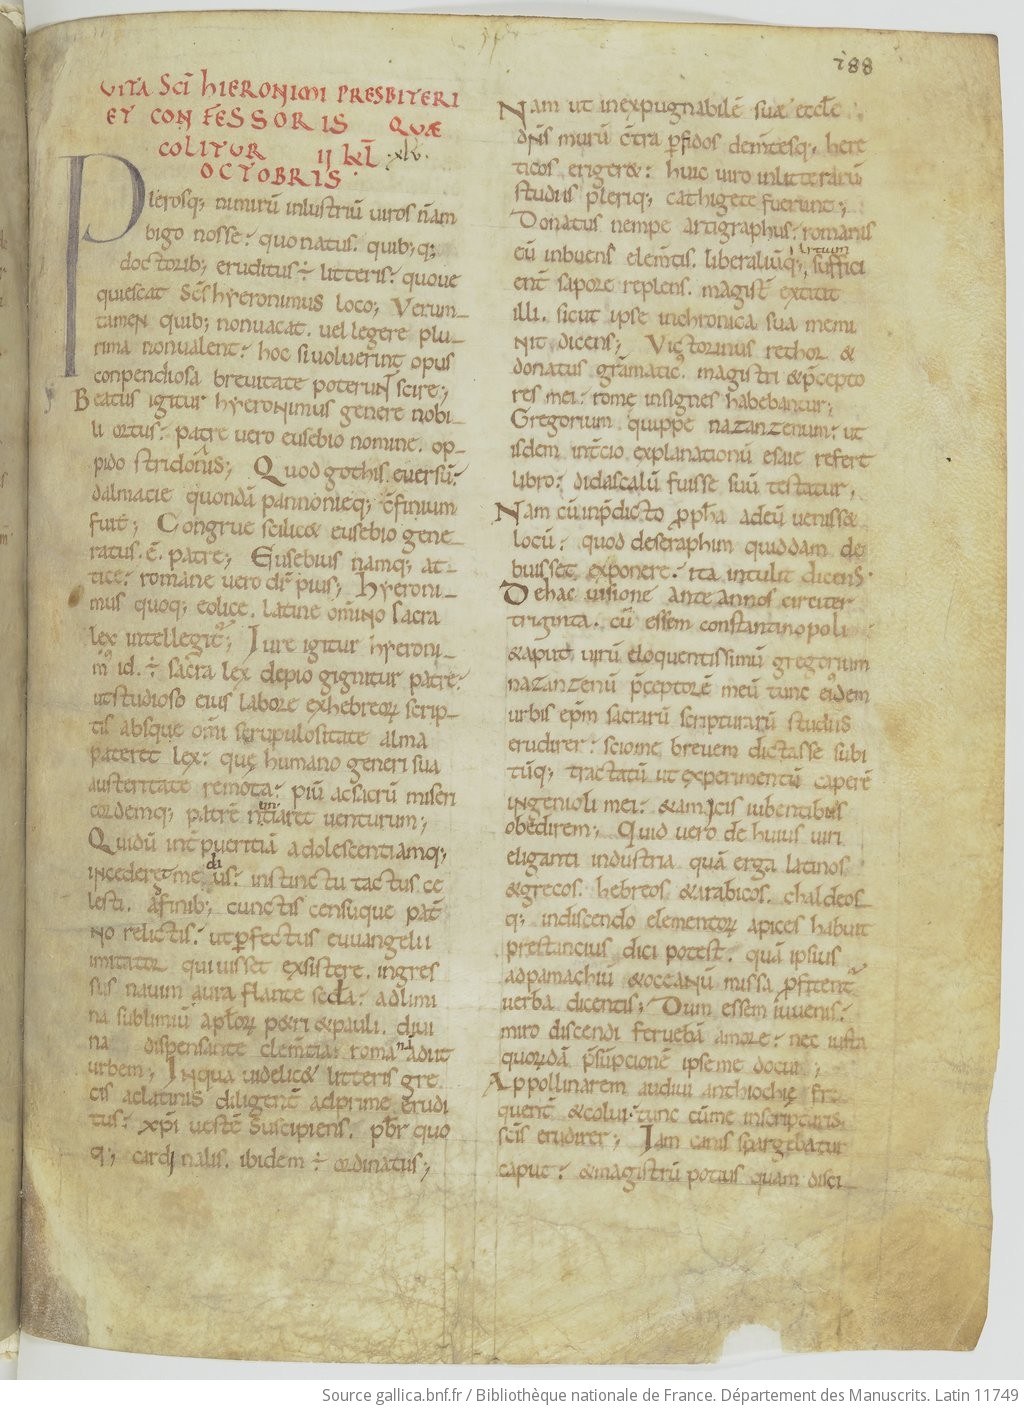 188
VITA SCI HIERONIMI PRESBITERI
ET CONFESSORIS QUÆ
COLITUR II KL .xlv.
OCTOBRIS
Plerosq; nimirū inlustriū uiros nāam
bigo nosse. quo natus. quib;q;
doctorib; eruditus ÷ litteris. quoue
quiescat Scs hyeronimus loco; Verum-
tamen quib; nonuacat. uel legere plu-
rima nonualent. hoc siuoluerint opus
conpendiosa breuitate poterunt scire;
Beatus igitur hyeronimus genere nobi
li ortus. patre uero eusebio nomine. op-
pido stridonis; Quod gothis euersū.
dalmacie quondā pannonieq; cfinium
fuit; Congrue scilic& eusebio gene-
ratus. ē. patre; Eusebius namq; at-
tice. romane uero dr pius; Hyeroni-
mus quoq; eolice. latine omino sacra
lex intellegit; Iure igitur hyeroni-
m' id. ÷ sacra lex depio gignitur patre.
utstudioso eius labore exhebreorum scrip-
tis absque omi scrupulositate alma
pateret lex. quę humano generi sua
austeritate remota. piū acsacrū miseri
cordemq; patrē ntiaret uenturum;
Quidū int pueritiā adolescentiamq;
incederet medius. instinctu tactus ce
lesti. afinib; cunctis censuque pat
no relictis. utpfectus euuangelii
imitator quiuisset exsistere. ingres
sus nauim aura flante secda. adlimi
na sublimiū aplorum p&ri &pauli. diui
na dispensante clemtia. romā adiit
urbem; Inqua uidelic& litteris gre
cis aclatinis diligent adprime erudi
tus. xpi uestē suscipiens. pbr quo
q; cardinalis. ibidem ÷ ordinatus;
Nam ut inexpugnabilē suæ eccle
dns murū ctra pfidos demtesq; here
ticos eriger&. huic uiro inlitterarū
studiis pleriq; cathigete fuerunt;
Donatus nempe artigraphus. romanis
cū inbuens elemtis. liberaliūq; artium suffici
ent sapore replens. magist extitit
illi. sicut ipse inchronica sua memi
nit dicens; Victorinus rethor &
donatus gramatic. magistri &pcepto
res mei. romę insignes habebantur;
Gregorium quippe nazanzenum. ut
isdem initcio explanationū esaie refert
libro. didascalū fuisse suū testatur.
Nam cū inpdicto ppha adeū uenisse
locū. quod deseraphim quiddam de
buisset exponere. ita intulit dicens.
De hac uisione ante annos circiter
triginta. cū essem constantinopoli
&aput uirū eloquentissimū gregorium
nazanzenū pceptorē meū tunc eidem
urbis epm sacrarū scripturarū studiis
erudirer. scio me breuem dictasse subi
tūq; tractatū ut experimentū caperē
ingenioli mei. &amicis iubentibus
obedirem; Quid uero de huius uiri
eliganti industria quā erga latinos
&grecos. hebreos &arabicos. chaldeos-
q; indiscendo elementorum apices habuit
prestancius dici potest. quā ipsius
adpamachiū &oceanū missa pfitent
uerba dicentis; Dum essem iuuenis.
miro discendi feruebā amore. nec iuxta
quordā psupcionē ipse me docui;
Appollinarem audiui anthiochię fre
quent &colui. tunc cūme inscripturis
scis erudirer; Iam canis spargebatur
caput. &magistrū potius quam disci-
Source gallica.bnf.fr / Bibliothèque nationale de France. Département des Manuscrits. Latin 11749